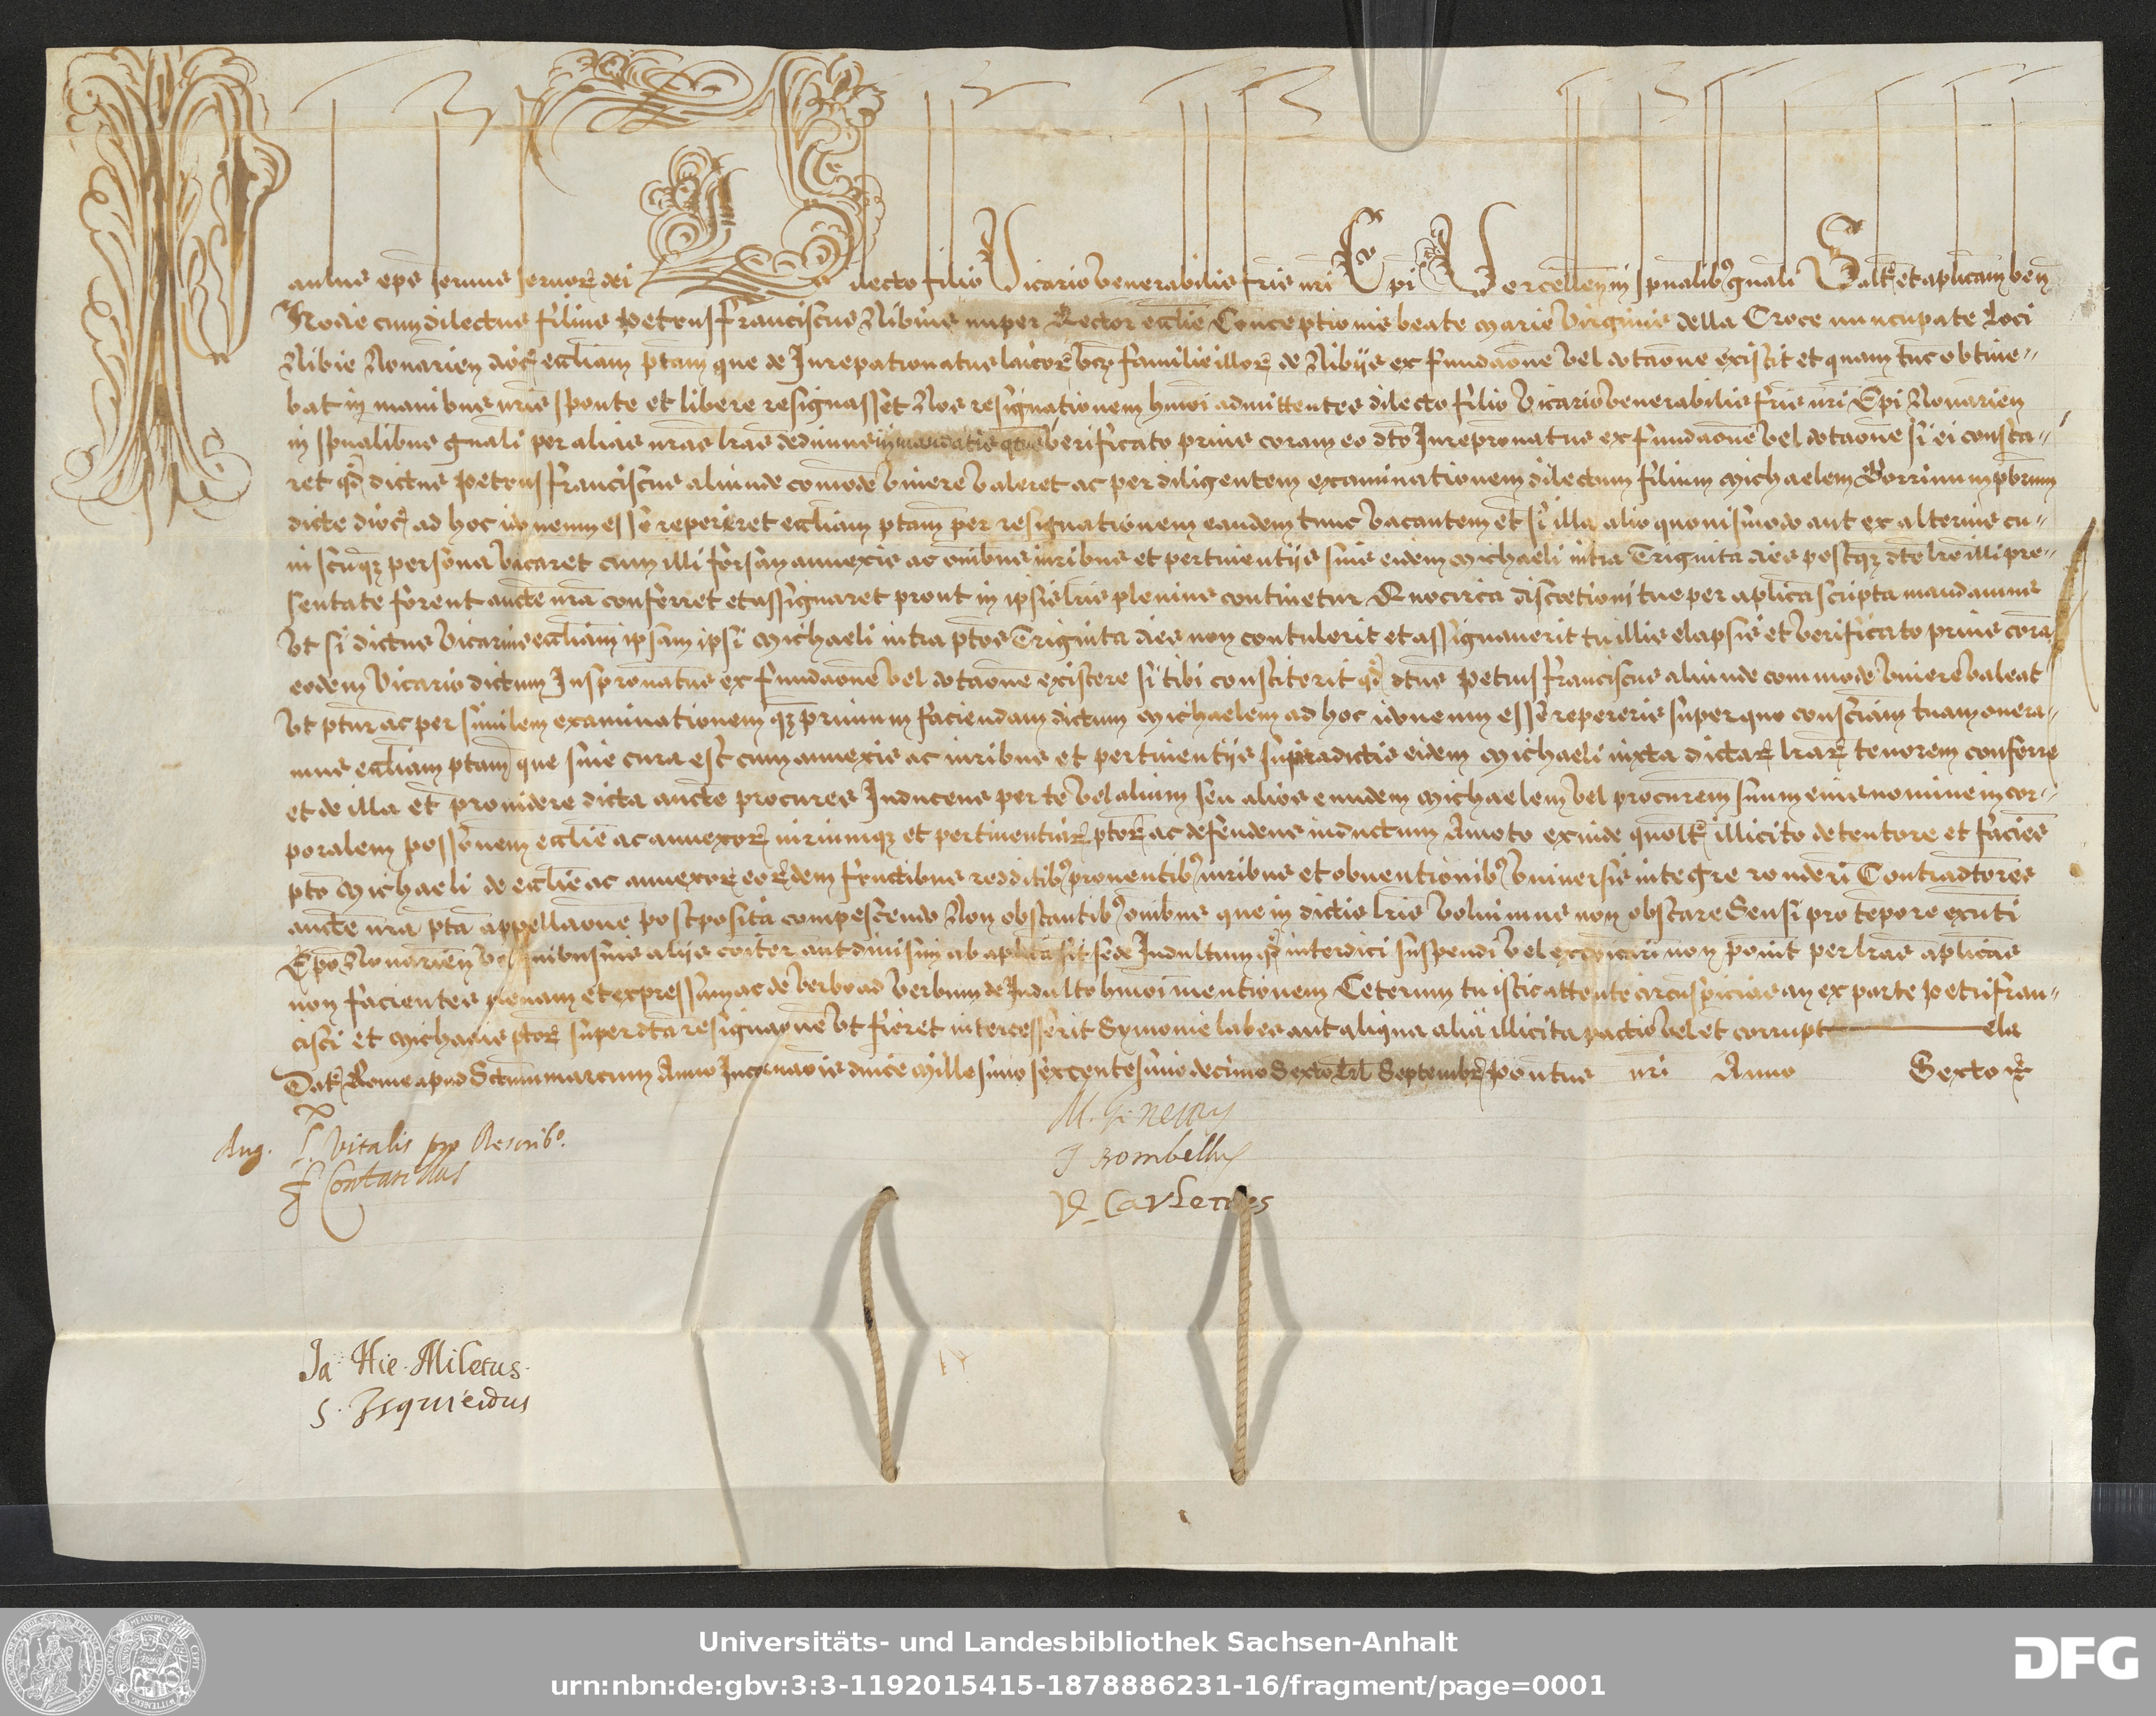 Paulus eps servus servor dei Dilecto filio Vicario venerabilis fris nri Epi Vercellen in spualib gnali Saltē et aplicam ben
Hodie cum dilectus filius Petrusfranciscus Nibius nuper Rector ecclie Conceptionis beate Marie Virginis della Croce nuncupate loci
Nibie Novarien dioc eccliam ptam que de Jurepatronatus laicor familie illor de Nibijs ex fundaone vel dotaone existit et quam tunc obtine-
bat in manibus nris sponte et libere resignasset Nos resignationem hmoi admittentes dilecto filio Vicario venerabilis fris nri Epi Novarien
in spualibus gnali per alias nras lras dedimus in mandatis qtus verificato prius coram eo dto Jurepronatus ex fundaone vel dotaone si ei consta-
ret qd dictus Petrusfranciscus aliunde comode vivere valeret ac per diligentem examinationem dilectum filium Michaelem Porrinum pbrum
dicte dioc ad hoc idoneum esse reperiret eccliam ptam per resignationem eandem tunc vacantem et si illa alio quovismodo aut ex alterius cu-
iuscuqz persona vacaret cum illi forsan annexis ac omibus iuribus et pertinentijs suis eidem Michaeli intra Triginta dies postqz dte lre illi pre-
sentate forent aucte nra conferret et assignaret prout in ipsis lris plenius continetur Quocirca discretioni tue per aplica scripta mandamus
Vt si dictus Vicarius eccliam ipsam ipsi Michaeli intra ptos Triginta dies non contulerit et assignaverit tu illis elapsis et verificato prius cora
eodem Vicario dictum Juspronatus ex fundaone vel dotaone existere si tibi constiterit qd dtus Petrusfranciscus aliunde commode vivere valeat
Vt ptur ac per similem examinationem qz primum faciendam dictum Michaelem ad hoc idoneum esse repereris super quo consciam tuam onera-
mus eccliam ptam que sine cura est cum annexis ac iuribus et pertinentijs supradictis eidem Michaeli iuxta dictar lrar tenorem conferre
et de illa et providere dicta aucte procures Inducens per te vel alium seu alios eundem Michaelem vel procurem suum eius nomine in cor-
poralem possonem ecclie ac annexor iuriumqz et pertinentiar ptor ac defendens inductum Amoto exinde quolt illicito detentore et facies
pto Michaeli de ecclie ac annexor eordem fructibus redditib proventib iuribus et obventionib universis integre ronderi Contradtores
aucte nra pta appellaone postposita compescendo Non obstantib omibus que in dictis lris voluimus non obstare Seu si pro tepore exnti
Epo Novarien vel quibusvis alijs coiter aut divisim ab aplica sit sede Indultum qd interdici suspendi vel excoicari non point per lras aplicas
non facientes plenam et expressam ac de verbo ad verbum de Indulto hmoi mentionem Ceterum tu istic attente circuspicias an ex parte Petrifran-
cisci et Michaelis ptor super dta resignaone vt fieret intercesserit Symonie labes aut aliqua alia illicita pactio vel et corrupt ela
Dat Rome apud Sctum Marcum Anno Incarnaonis dnice Millesimo sexcentesimo decimo Sexto Kl Septembr Pontus nri Anno Sexto
Aug. Vitalis pro Rescrib°.
Contarinus
M. Genettus
J Bombellus
Ja Hie. Miletus.
S. Isquierdus
Universitäts- und Landesbibliothek Sachsen-Anhalt
urn:nbn:de:gbv:3:3-1192015415-1878886231-16/fragment/page=0001
DFG